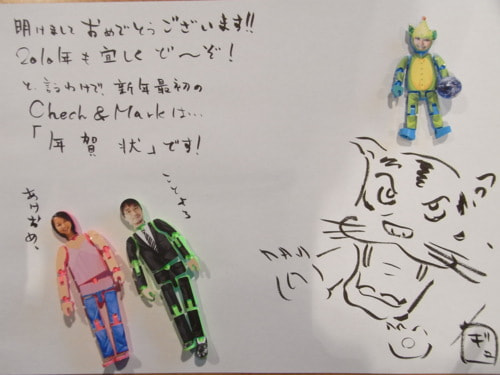 明けまして おめでとうございます!!
2010年も宜しくど〜ぞ!
と、言うわけで、新年最初の
Chech & Markは…
「年賀状」です!
ことよろ
あけおめ。